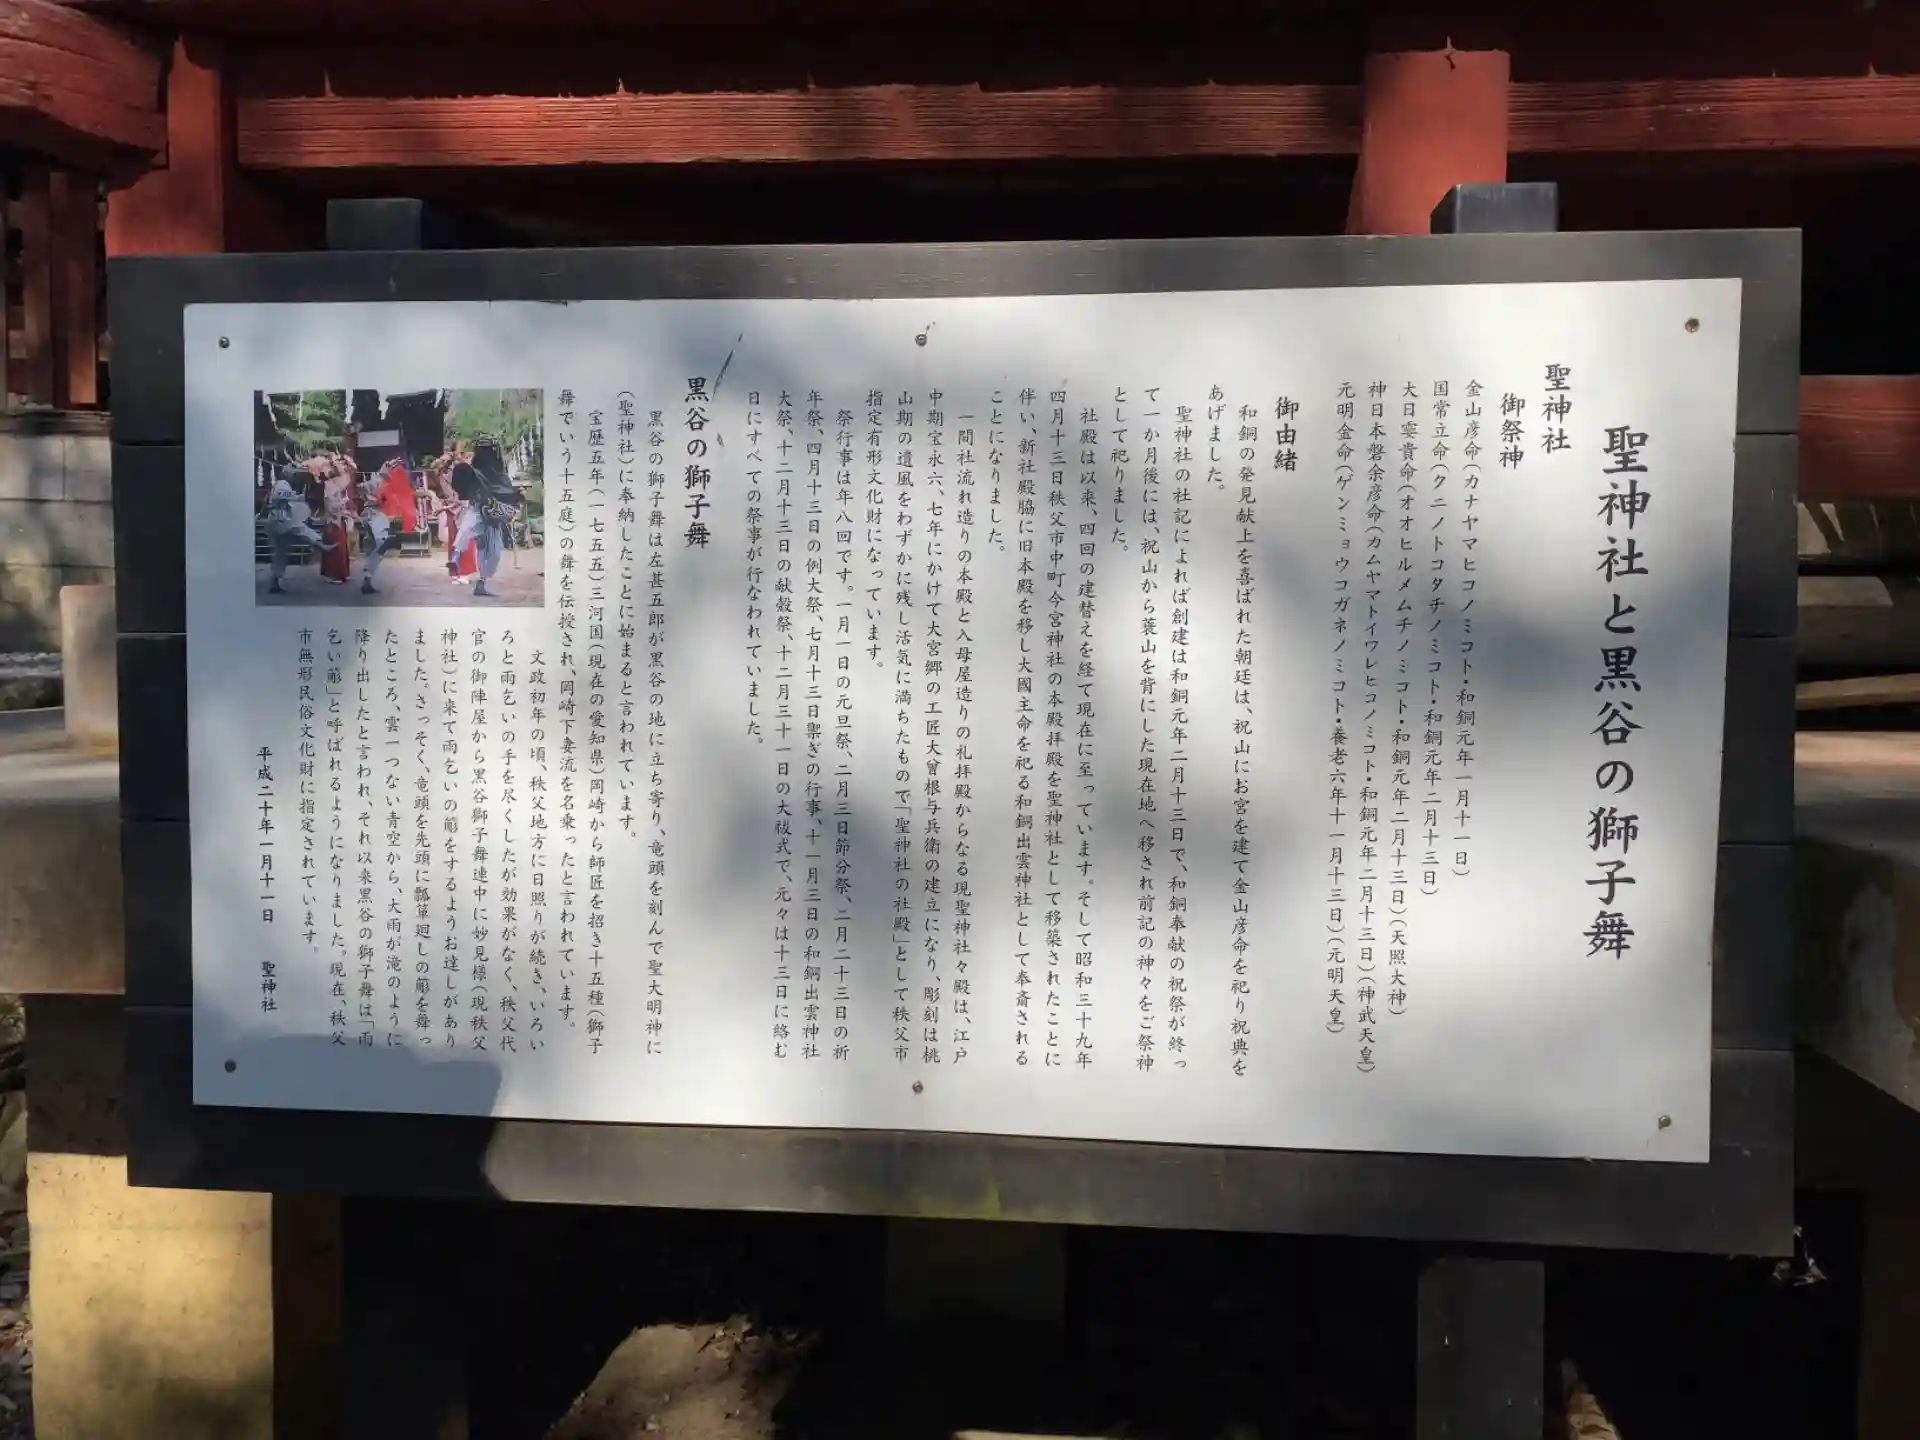 聖神社と黒谷の獅子舞
聖神社
御祭神
金山彦命(カナヤマヒコノミコト・和銅元年一月十一日)
国常立命(クニノトコタチノミコト・和銅元年二月十三日)
大日孁貴命(オオヒルメムチノミコト・和銅元年二月十三日)(天照大神)
神日本磐余彦命(カムヤマトイワレヒコノミコト・和銅元年二月十三日)(神武天皇)
元明金命(ゲンミョウコガネノミコト・養老六年十一月十三日)(元明天皇)
御由緒
和銅の発見献上を喜ばれた朝廷は、祝山にお宮を建て金山彦命を祀り祝典を
あげました。
聖神社の社記によれば創建は和銅元年二月十三日で、和銅奉献の祝祭が終っ
て一か月後には、祝山から蓑山を背にした現在地へ移され前記の神々をご祭神
として祀りました。
社殿は以来、四回の建替えを経て現在に至っています。そして昭和三十九年
四月十三日秩父市中町今宮神社の本殿拝殿を聖神社として移築されたことに
伴い、新社殿脇に旧本殿を移し大國主命を祀る和銅出雲神社として奉斎される
ことになりました。
一間社流れ造りの本殿と入母屋造りの礼拝殿からなる現聖神社々殿は、江戸
中期宝永六、七年にかけて大宮郷の工匠大曾根与兵衛の建立になり、彫刻は桃
山期の遺風をわずかに残し活気に満ちたもので「聖神社の社殿」として秩父市
指定有形文化財になっています。
祭行事は年八回です。一月一日の元旦祭、二月三日節分祭、二月二十三日の祈
年祭、四月十三日の例大祭、七月十三日禦ぎの行事、十一月三日の和銅出雲神社
大祭、十二月十三日の献穀祭、十二月三十一日の大祓式で、元々は十三日に絡む
日にすべての祭事が行なわれていました。
黒谷の獅子舞
黒谷の獅子舞は左甚五郎が黒谷の地に立ち寄り、竜頭を刻んで聖大明神に
(聖神社)に奉納したことに始まると言われています。
宝歴五年(一七五五)三河国(現在の愛知県)岡崎から師匠を招き十五種(獅子
舞でいう十五庭)の舞を伝授され、岡崎下妻流を名乗ったと言われています。
文政初年の頃、秩父地方に日照りが続き、いろい
ろと雨乞いの手を尽くしたが効果がなく、秩父代
官の御陣屋から黒谷獅子舞連中に妙見様(現秩父
神社)に来て雨乞いの簓をするようお達しがあり
ました。さっそく、竜頭を先頭に瓢箪廻しの簓を舞っ
たところ、雲一つない青空から、大雨が滝のように
降り出したと言われ、それ以来黒谷の獅子舞は「雨
乞い簓」と呼ばれるようになりました。現在、秩父
市無形民俗文化財に指定されています。
平成二十年一月十一日 聖神社